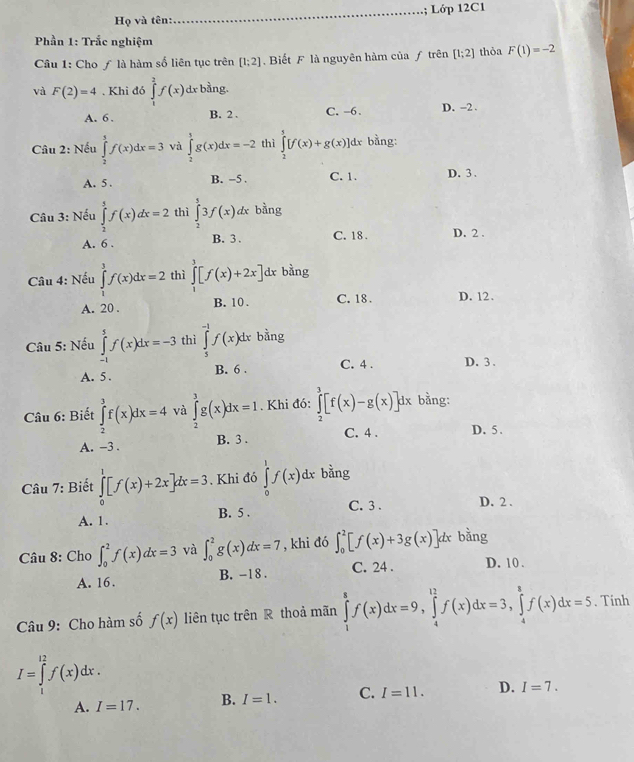 Họ và tên:..............................................................; Lớp 12C1
Phần 1: Trắc nghiệm
Câu 1: Cho f là hàm số liên tục trên [1;2]. Biết F là nguyên hàm của f trên [1;2] thỏa F(1) = −2
và F(2) = 4 . Khi đó ∫₁² f(x)dx bằng.
A. 6. B. 2. C. −6. D. −2.
Câu 2: Nếu ∫₂⁵ f(x)dx = 3 và ∫₂⁵ g(x)dx = −2 thì ∫₂⁵ [f(x) + g(x)]dx bằng:
A. 5. B. −5. C. 1. D. 3.
Câu 3: Nếu ∫₂⁵ f(x)dx = 2 thì ∫₂⁵ 3f(x)dx bằng
A. 6. B. 3. C. 18. D. 2.
Câu 4: Nếu ∫₁³ f(x)dx = 2 thì ∫₁³ [f(x) + 2x]dx bằng
A. 20. B. 10. C. 18. D. 12.
Câu 5: Nếu ∫₋₁⁵ f(x)dx = −3 thì ∫₅⁻¹ f(x)dx bằng
A. 5. B. 6. C. 4. D. 3.
Câu 6: Biết ∫₂³ f(x)dx = 4 và ∫₂³ g(x)dx = 1. Khi đó: ∫₂³ [f(x) − g(x)]dx bằng:
A. −3. B. 3. C. 4. D. 5.
Câu 7: Biết ∫₀¹ [f(x) + 2x]dx = 3. Khi đó ∫₀¹ f(x)dx bằng
A. 1. B. 5. C. 3. D. 2.
Câu 8: Cho ∫₀² f(x)dx = 3 và ∫₀² g(x)dx = 7, khi đó ∫₀² [f(x) + 3g(x)]dx bằng
A. 16. B. −18. C. 24. D. 10.
Câu 9: Cho hàm số f(x) liên tục trên ℝ thoả mãn ∫₁⁸ f(x)dx = 9, ∫₄¹² f(x)dx = 3, ∫₄⁸ f(x)dx = 5. Tính
I = ∫₁¹² f(x)dx.
A. I = 17. B. I = 1. C. I = 11. D. I = 7.